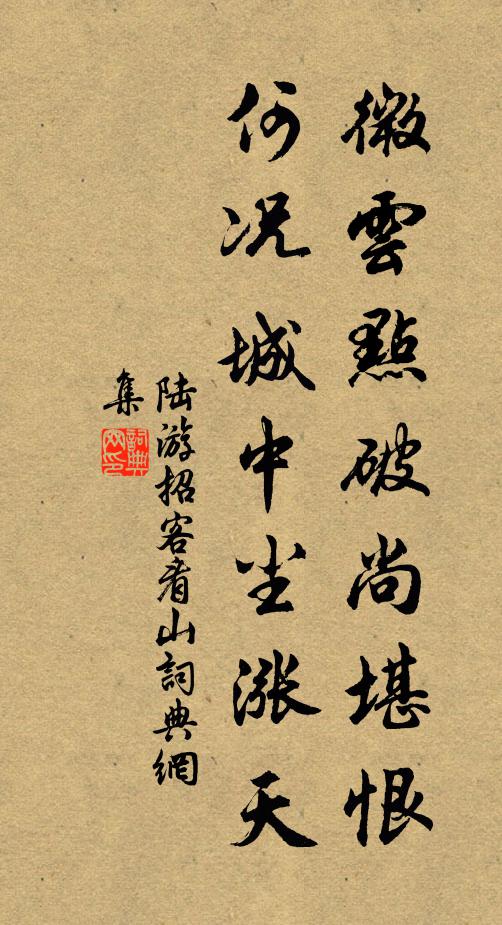 微雲點破尚堪恨
何况城中尘漲天
陆游招客看山詞典網
集
詞典
网印